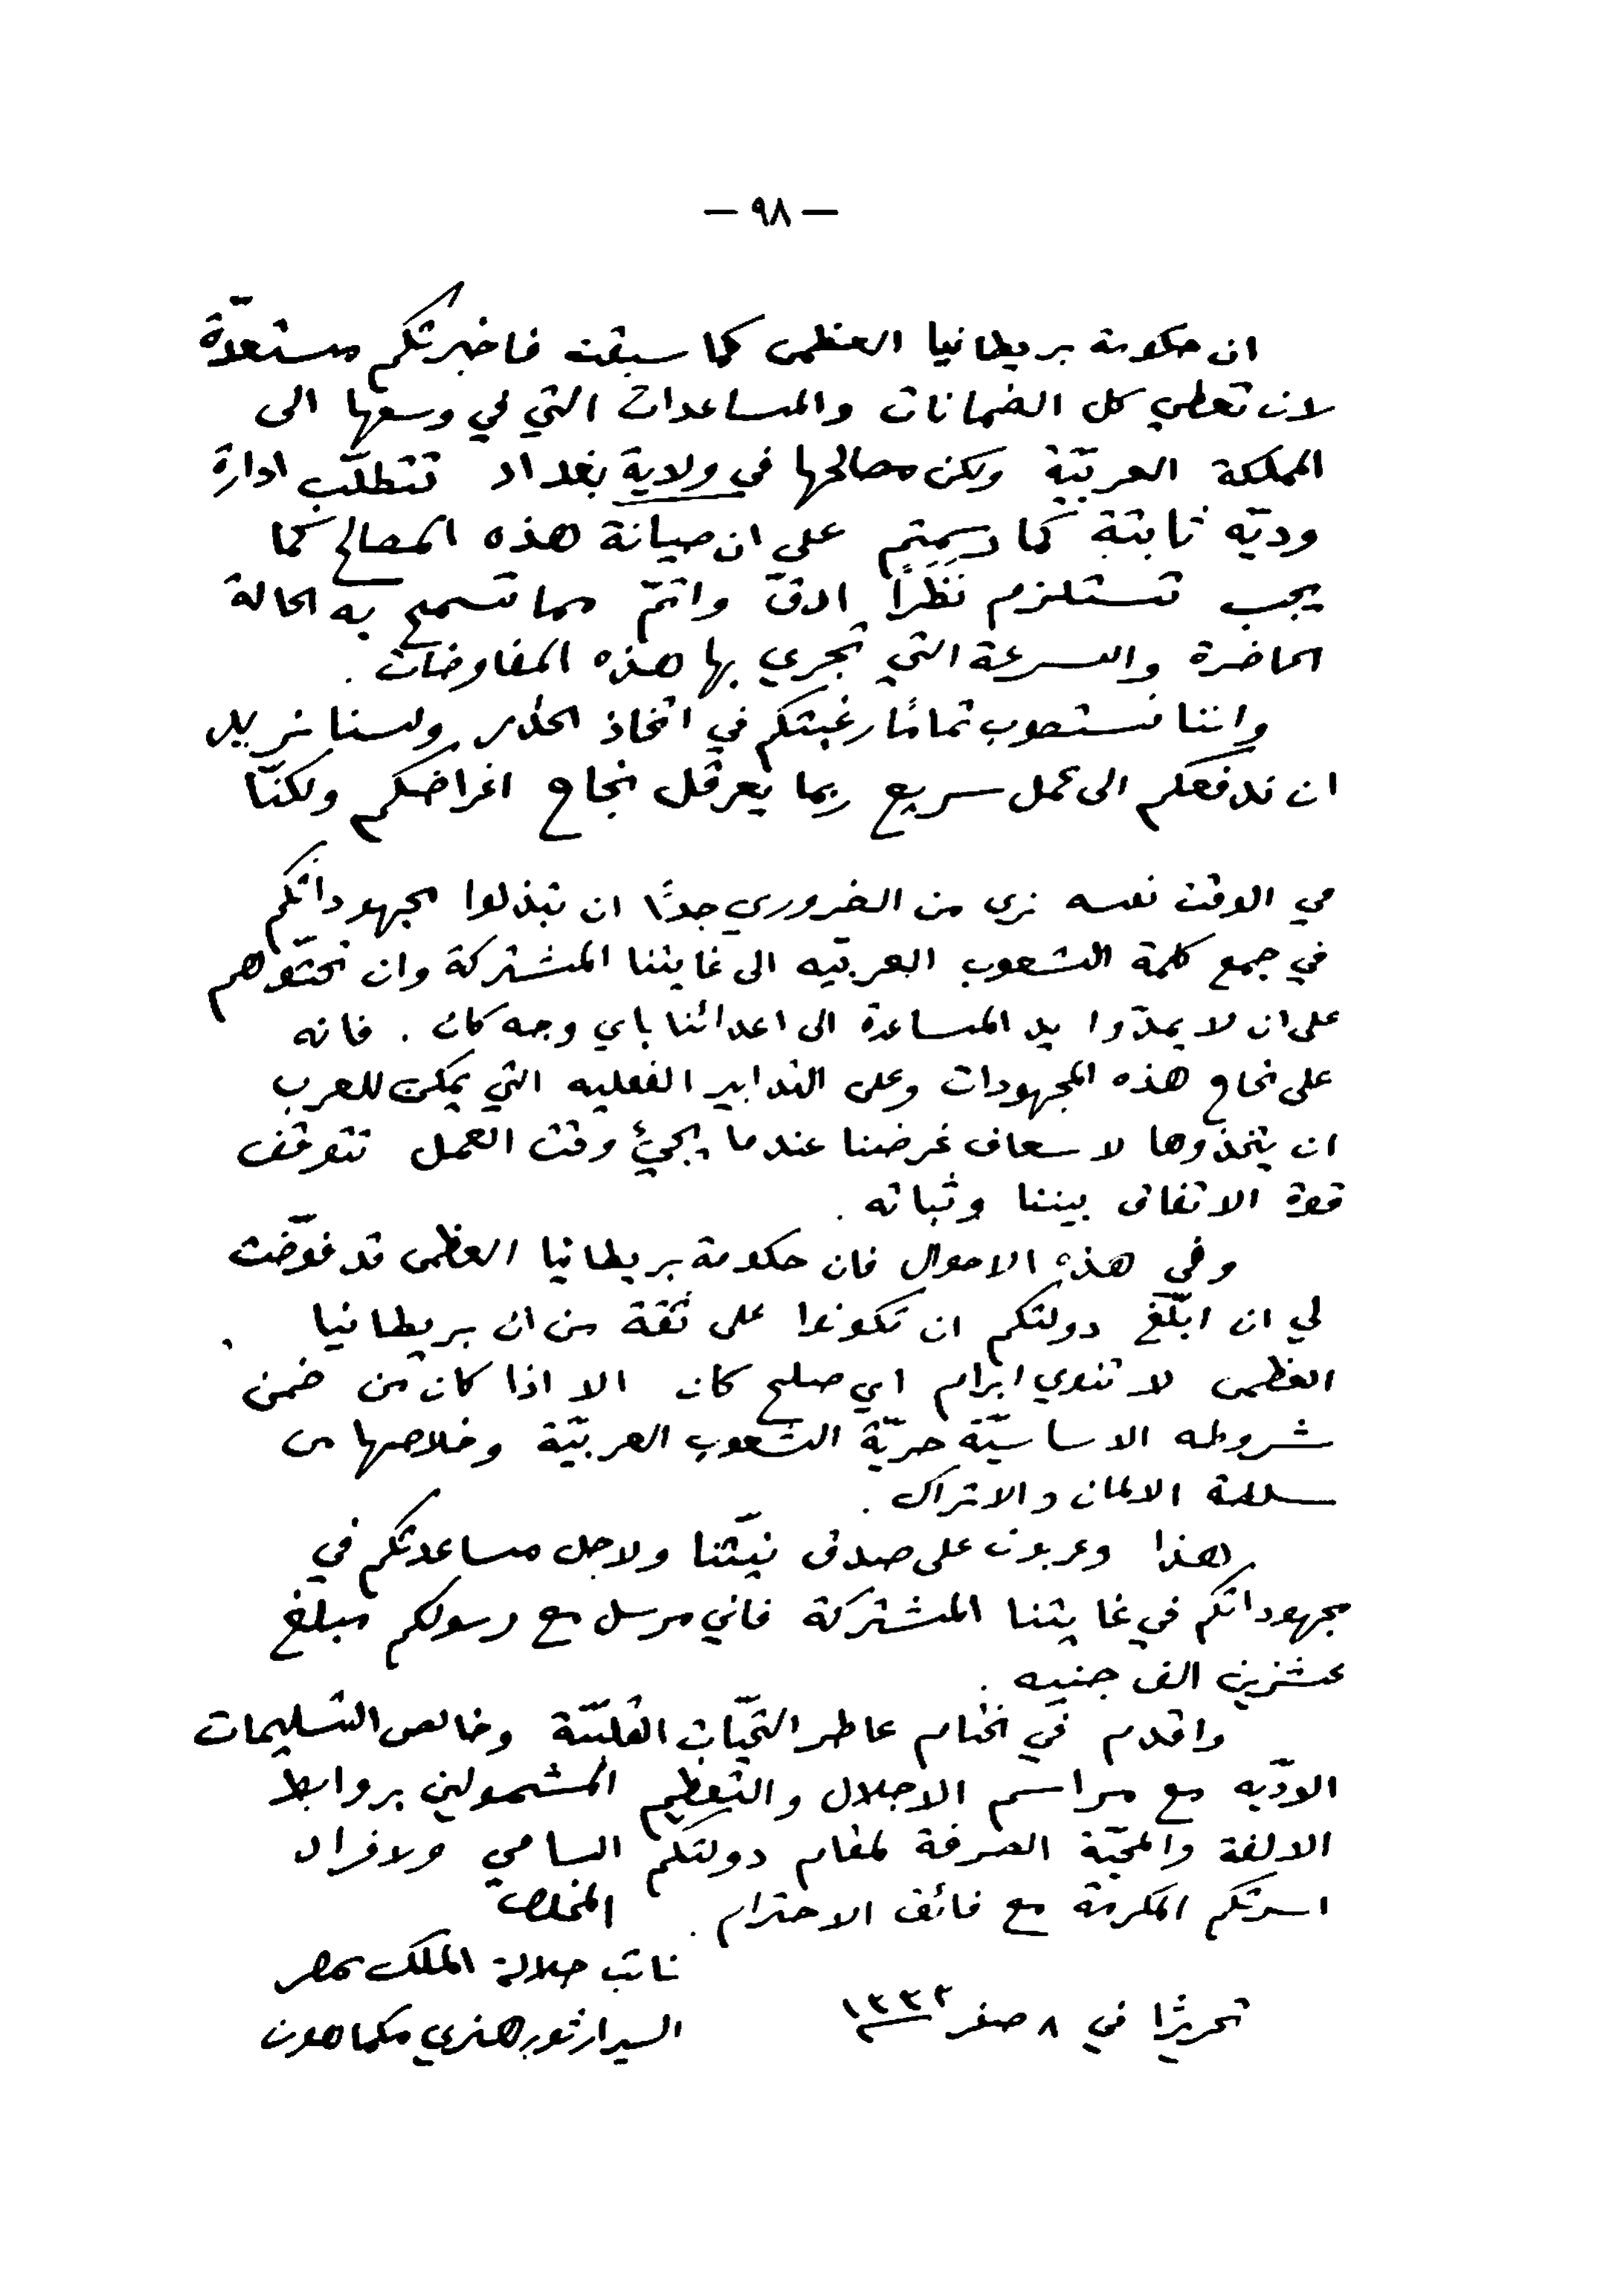 — ٩٨ —
ان حكومة بريطانيا العظمى كما سبقت فاخبرتكم مستعدّة
لان تعطي كل الضمانات والمساعدات التي في وسعها الى
المملكة العربيّة ولكن مصالحها في ولاية بغداد تتطلّب ادارة
وديّه ثابتة كما رسمتم على ان صيانة هذه المصالح كما
يجب تستلزم نَظَراً ادقّ واتمّ مما تسمح به الحالة
الحاضرة والسرعة التي تجري بها هذه المفاوضات .
واننا نستصوب تمامًا رغبتكم في اتخاذ الحذر ولسنا نريد
ان ندفعكم الى عمل سريع ربما يعرقل نجاح اغراضكم ولكنّا
في الوقت نفسه نرى من الضروري جدًا ان تبذلوا مجهوداتكم
في جمع كلمة الشعوب العربيّه الى غايتنا المشتركة وان تحثّوهم
على ان لا يمدّوا يد المساعدة الى اعدائنا باي وجه كان . فانه
على نجاح هذه المجهودات وعلى التدابير الفعليه التي يمكن للعرب
ان يتخذوها لاسعاف غرضنا عندما يجئ وقت العمل تتوقف
قوة الاتفاق بيننا وثباته .
وفي هذه الاحوال فان حكومة بريطانيا العظمى قد فوّضت
لي ان ابلّغ دولتكم ان تكونوا على ثقة من ان بريطانيا
العظمى لا تنوي ابرام اي صلح كان الا اذا كان من ضمن
شروطه الاساسيّة حريّة الشعوب العربيّة وخلاصها من
سلطة الالمان والاتراك .
هذا وعربون على صدق نيّتنا ولاجل مساعدتكم في
مجهوداتكم في غايتنا المشتركة فاني مرسل مع رسولكم مبلغ
عشرين الف جنيه .
واقدم في الختام عاطر التحيّات القلبيّة وخالص التسليمات
الودّيه مع مراسم الاجلال والتعظيم المشمولين بروابط
الالفة والمحبّة الصرفة لمقام دولتكم السامي ولافراد
اسرتكم المكرمة مع فائق الاحترام . المخلص
نائب جلالة الملك بمصر
تحريرًا في ٨ صفر ١٣٣٢
السير ارثور هنري مكماهون